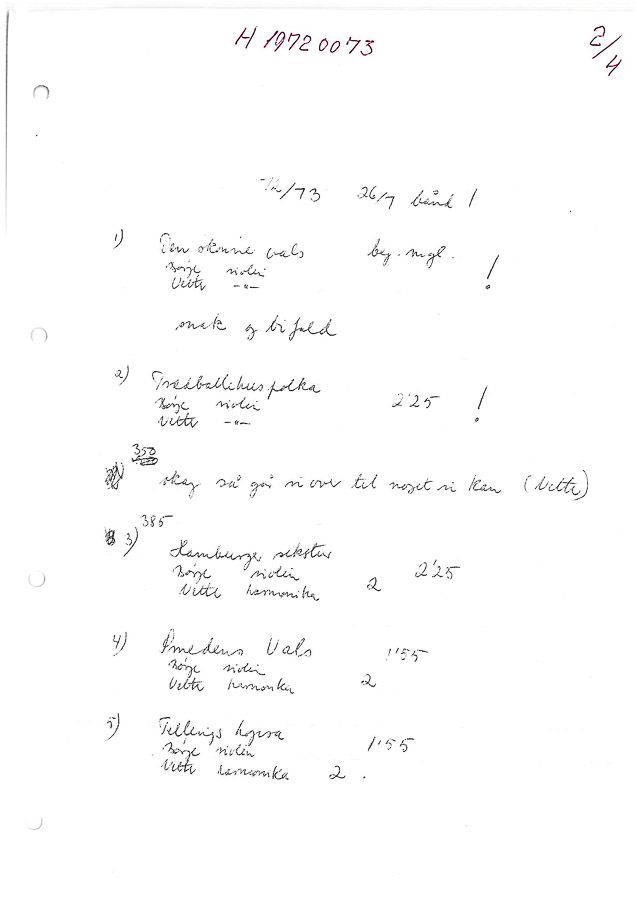 H 19720073
2/4
72/73 26/7 bånd 1
1) Den skønne vals beg. mgl.
Börge violin
Vette -"- !
snak og bifald
2) Trædballehus polka
Börge violin 2'25 !
Vette -"-
350
okay så går vi over til noget vi kan (Vette)
385
3) Hamburger sekstur
Börge violin 2'25
Vette harmonika 2
4) Smedens Vals 1'55
Börge violin
Vette harmonika 2
5) Tellings hopsa
Börge violin 1'55
Vette harmonika 2 .